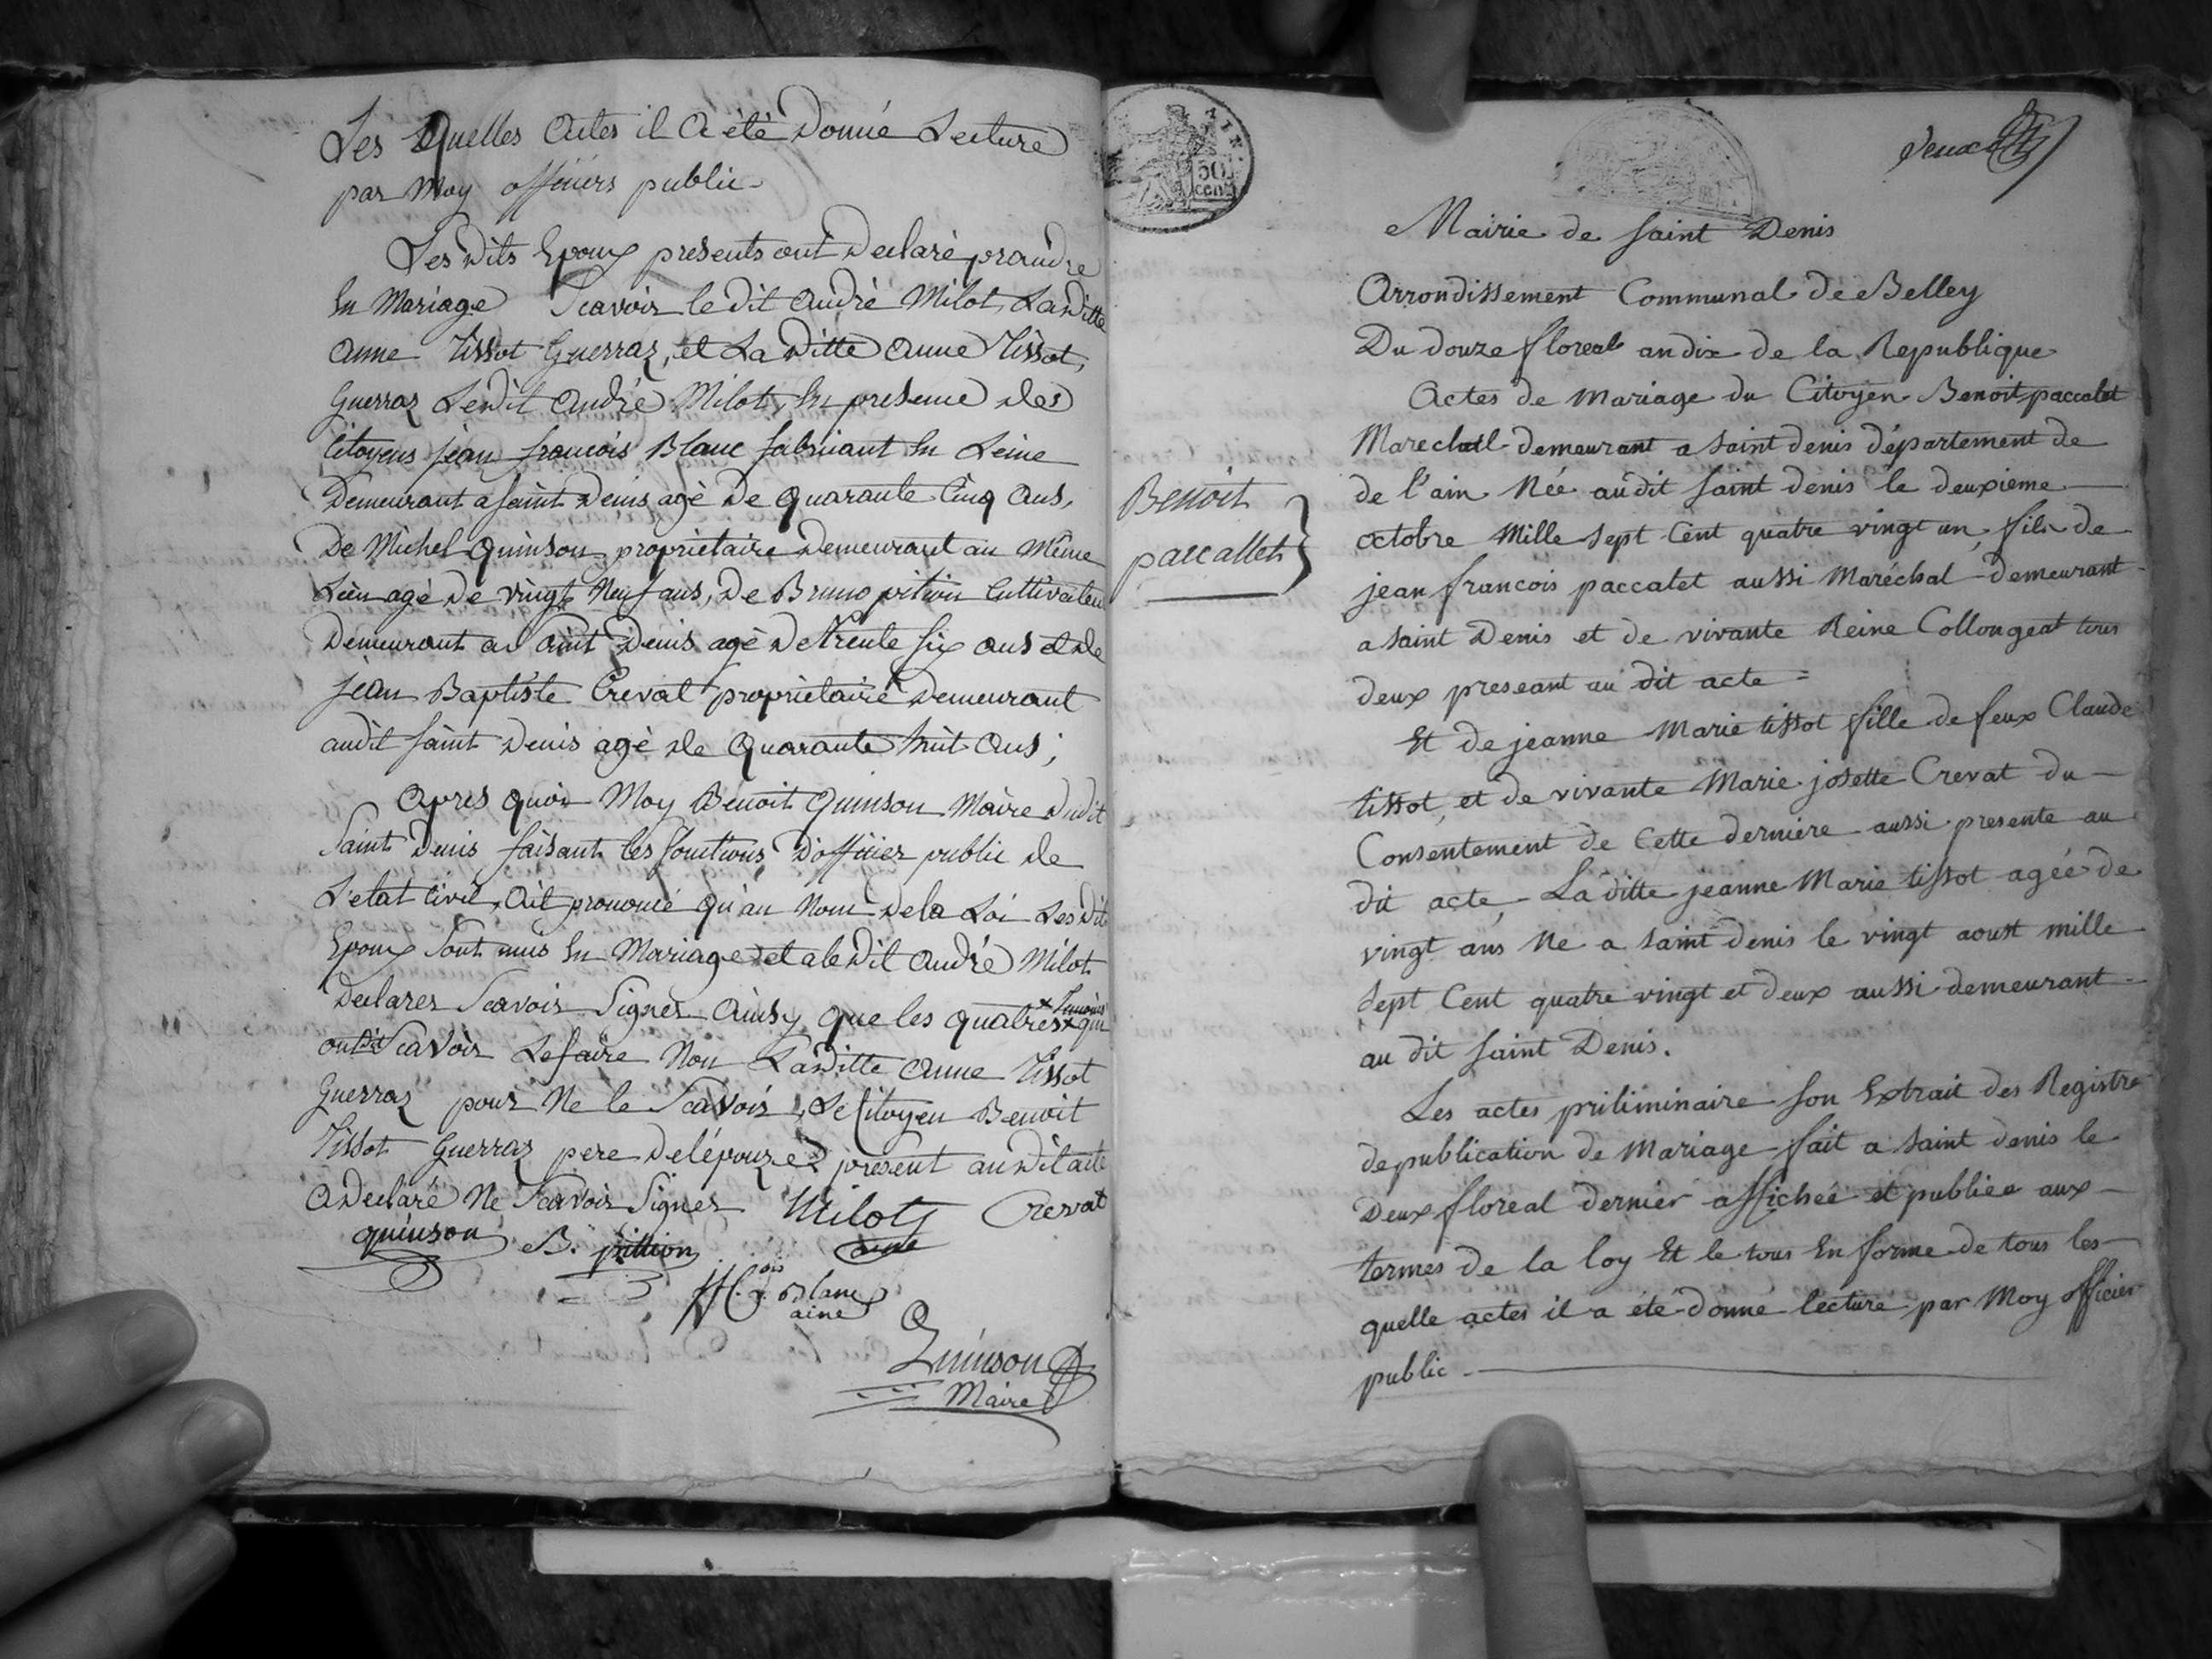 Les Quelles Actes il A été Donné Lecture
par Moy officiers public
Les Dits Epoux presents ont Declaré prandre
En Mariage Scavoir le dit André Milot, La ditte
Anne Tissot Guerraz, et La ditte Anne Tissot
Guerraz Ledit André Milot, En presence des
Citoyens jean françois Blanc fabricant En
Demeurant a saint Denis agé de quarante Cinq ans,
De Michel Quinson proprietaire Demeurant au Même
Lieu agé de vingt Neuf ans, De Bruno pittion Cultivateu
Demeurant a Saint Denis agé de trente six ans et de
jean Baptiste Crevat proprietaire Demeurant
audit saint Denis agé de Quarante huit ans ;
Apres quoi Moy Benoit Quinson Maire Dudit
Saint Denis faisant les fonctions D'officier public de
L'etat Civil, Ait prononcé qu'au Nom de la Loi Les Dit
Epoux Sont unis En Mariage et a le Dit André Milot
Declarer Scavoir Signer Ainsy que les quatres x temoins qui
ont dit Scavoir Le faire Non La ditte Anne Tissot
Guerraz pour Ne le Scavoir, Le Citoyen Benoit
Tissot Guerraz pere de l'épouze present au dit acte
A Declaré Ne Scavoir Signer Milot Crevat
quinson B. pittion
Blanc
ainé
Quinson
Maire
TIM.
50
cent
deux
Mairie de saint Denis
Arrondissement Communal de Belley
Du douze floreal an dix de la Republique
Actes de Mariage du Citoyen Benoit paccalet
Marechal demeurant a saint denis département de
de l'ain Née au dit saint denis le deuxieme
octobre Mille Sept Cent quatre vingt un, fils de
jean francois paccalet aussi Maréchal demeurant
a saint Denis et de vivante Reine Collongeat tous
deux preseant au dit acte =
Benoit
paccallet
Et de jeanne Marie tissot fille de feux Claude
tissot, et de vivante Marie josette Crevat du
Consentement de Cette derniere aussi presente au
dit acte, La ditte jeanne Marie tissot agée de
vingt ans Ne a saint denis le vingt aoust mille
Sept Cent quatre vingt et deux aussi demeurant
au dit saint Denis.
Les actes priliminaire son Extrait des Registre
de publication de Mariage fait a saint denis le
Deux floreal dernier affichée et publiee aux
termes de la loy Et le tous En forme de tous les
quelle actes il a été donné lecture par Moy officier
public